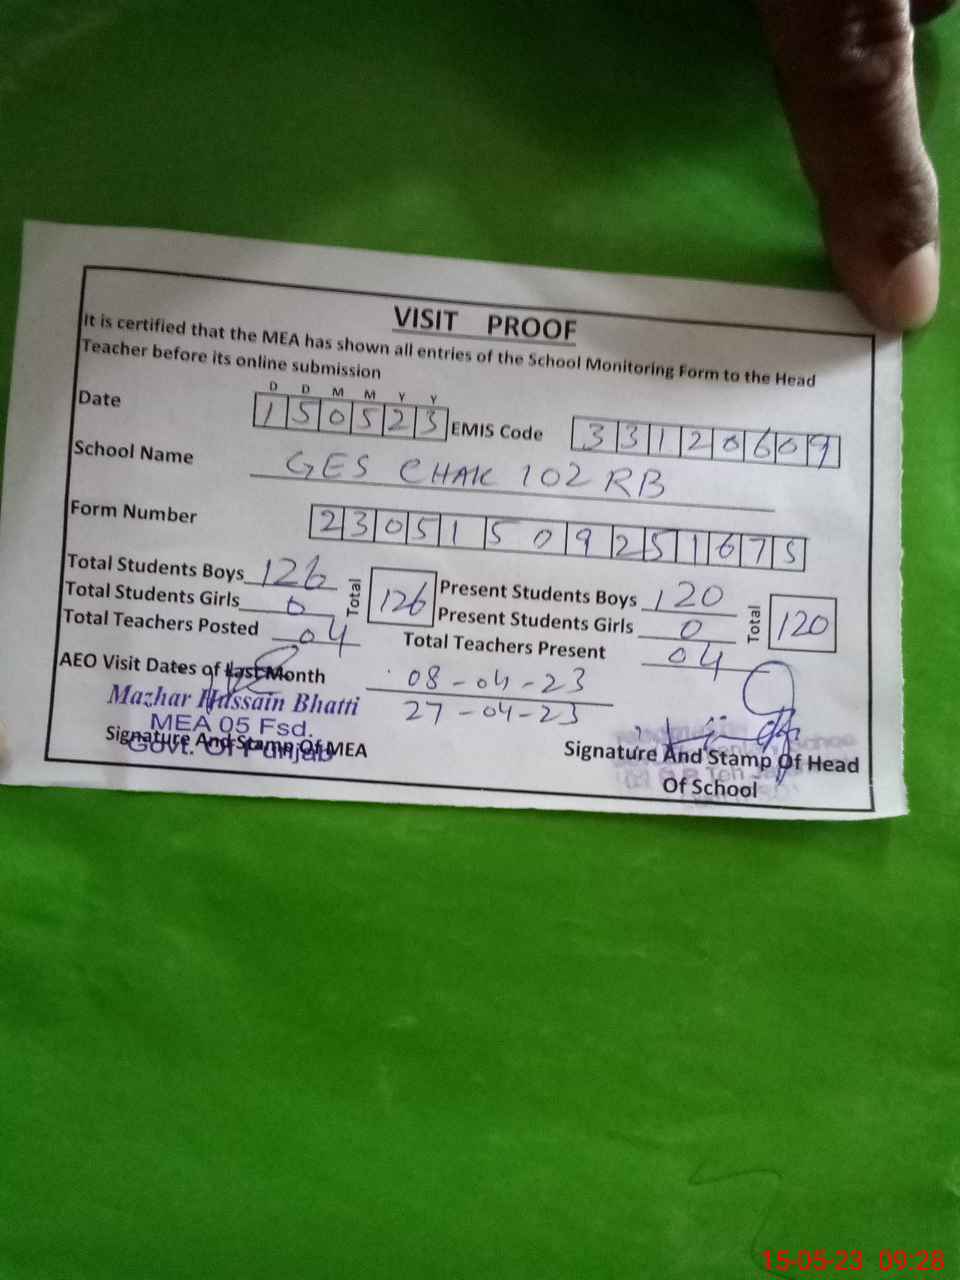 VISIT PROOF
It is certified that the MEA has shown all entries of the School Monitoring Form to the Head
Teacher before its online submission
D D M M Y Y
Date 1 5 0 5 2 3 EMIS Code 3 3 1 2 0 6 0 9
School Name GES CHAK 102 RB
Form Number 2 3 0 5 1 5 0 9 2 5 1 6 7 5
Total Students Boys 126 Total 126 Present Students Boys 120 Total 120
Total Students Girls 0 Present Students Girls 0
Total Teachers Posted 04 Total Teachers Present 04
AEO Visit Dates of Last Month 08-04-23
27-04-23
Mazhar Hussain Bhatti
MEA 05 Fsd.
Govt. Of Punjab
Signature And Stamp Of MEA
Signature And Stamp Of Head
Of School
15-05-23 09:28